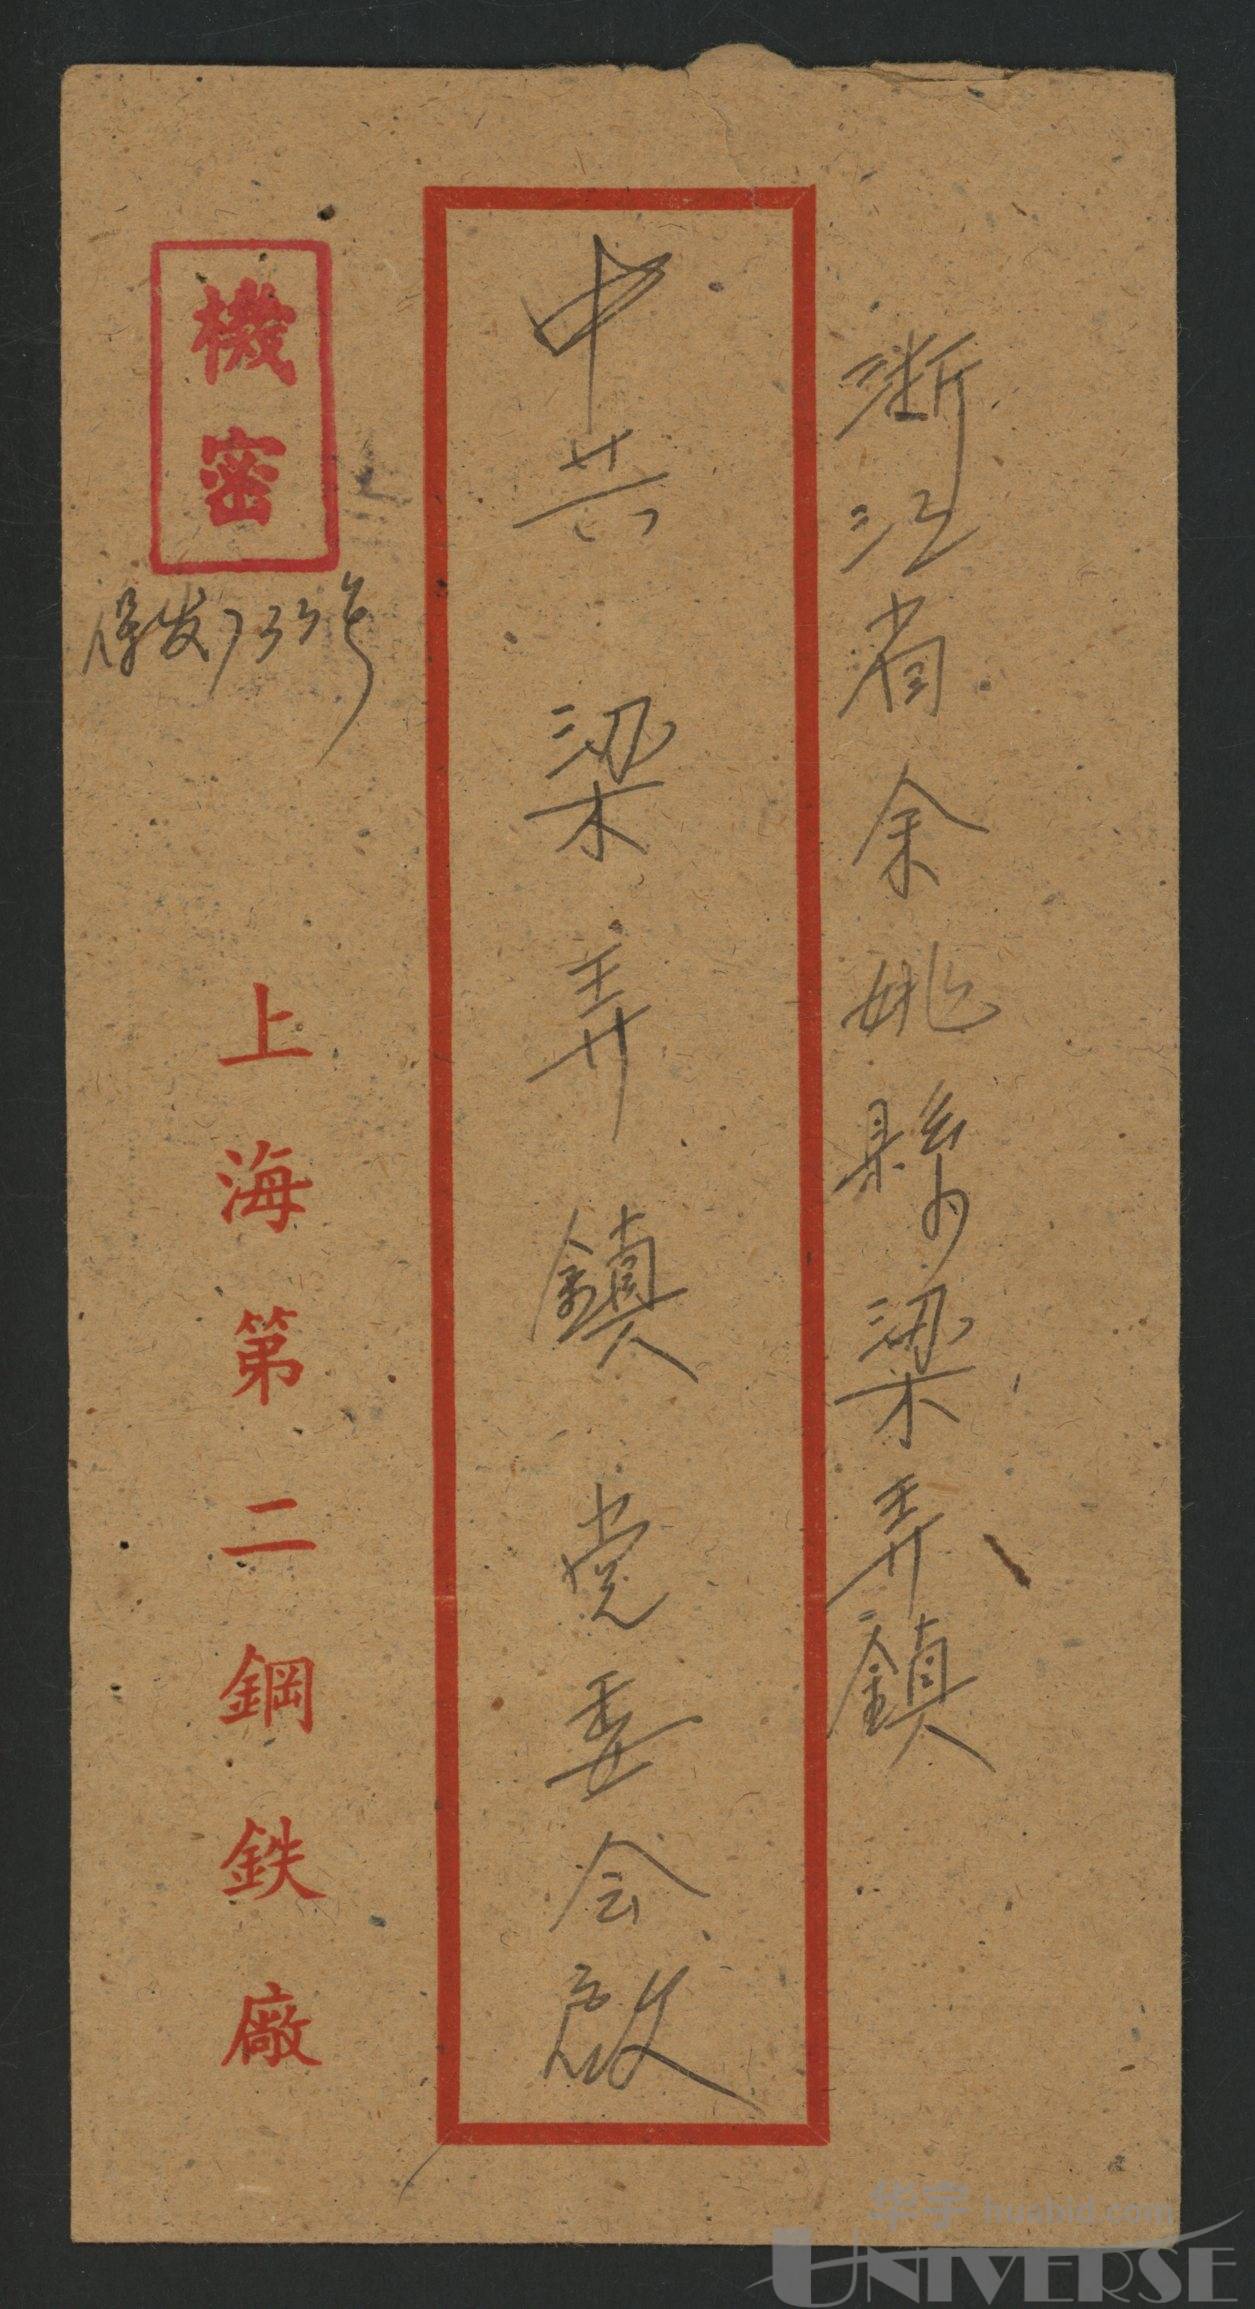 浙江省余姚縣梁弄鎮
中共梁弄鎮党委会啟
機密
保发733号
上海第二鋼鉄廠
华宇 huabid.com
UNIVERSE